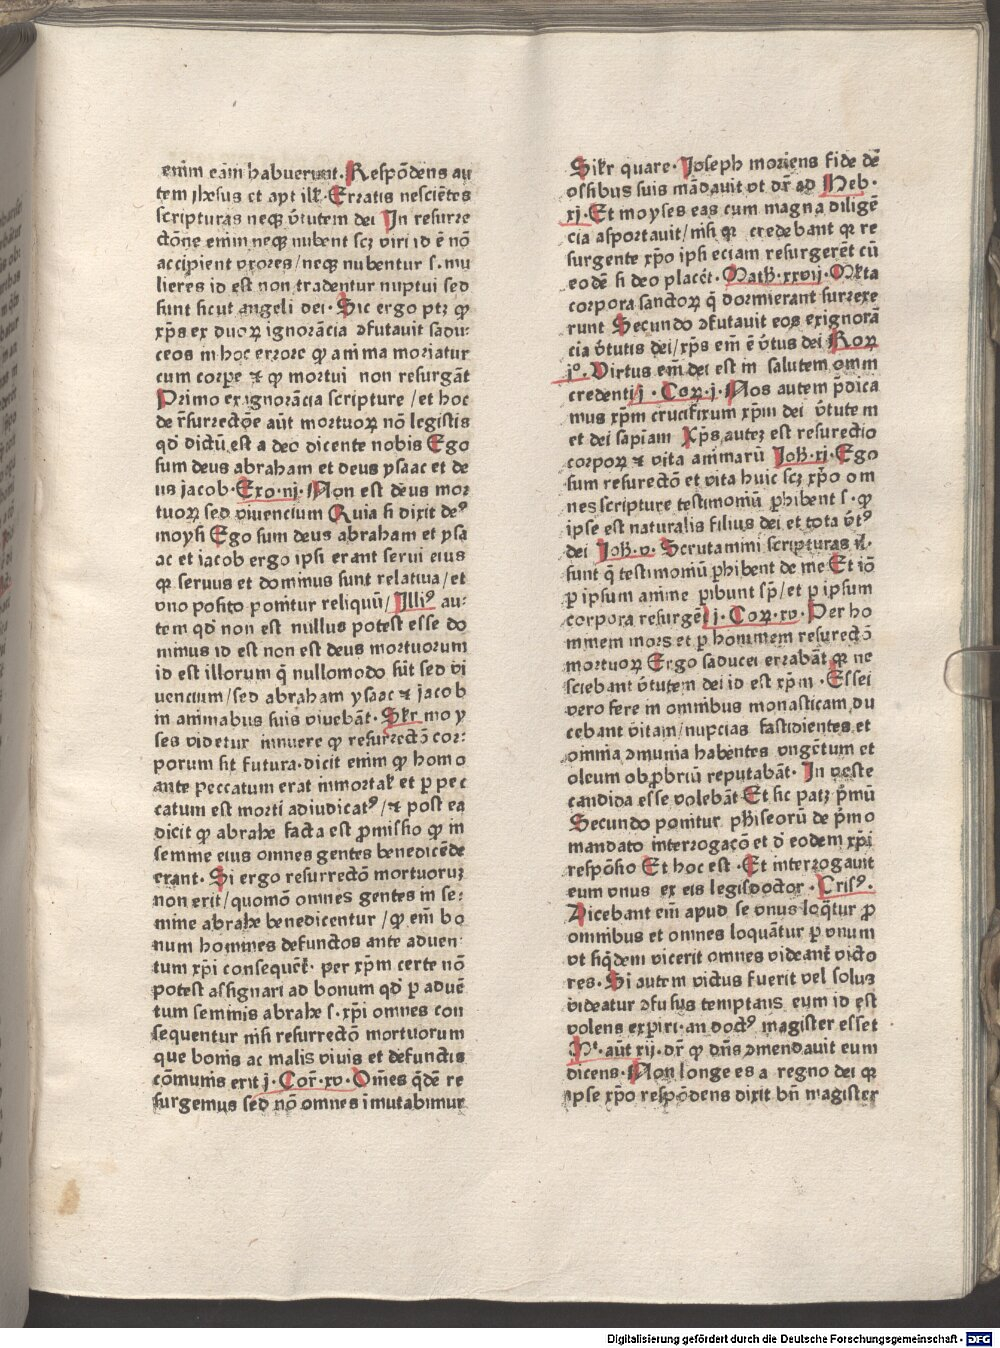 enim eam̄ habuerunt. Respōdens au
tem ihesus et apt ill̄. Erratis nesciētes
scripturas neqꝫ v̄tutem dei In resurre
ctōne enim neqꝫ nubent scꝫ viri id ē nō
accipient vxores/neqꝫ nubentur .s. mu
lieres id est non tradentur nuptui sed
sunt sicut angeli dei. Sic ergo ptꝫ ꝙ
xp̄s ex duoꝝ ignorācia ↄfutauit sadu⸗
ceos in hoc errore ꝙ anima moriatur
cum corpe ⁊ ꝙ mortui non resurgāt
Primo ex ignorācia scripture/et hoc
de r̄surrectōe aūt mortuoꝝ nō legistis
qd̄ dictū est a deo dicente nobis Ego
sum deus abraham et deus ysaac et de
us jacob. Exo.iij. Non est deus mor
tuoꝝ sed viuencium Quia si dixit deꝰ
moysi Ego sum deus abraham et ysa
ac et iacob ergo ipsi erant serui eius
ꝙ seruus et dominus sunt relatiua/et
vno posito ponitur reliquū/Illiꝰ au⸗
tem qd̄ non est nullus potest esse do
minus id est non est deus mortuorum
id est illorum q̄ nullomodo sūt sed vi
uencium/sed abraham ysaac ⁊ jacob
in animabus suis viuebāt. Sīkr mo y
ses videtur innuere ꝙ resurrectō cor⸗
porum sit futura. dicit enim ꝙ homo
ante peccatum erat inmortal̄ et p pec
catum est morti adiudicatꝰ/⁊ post ea
dicit ꝙ abrahe facta est ꝓmissio ꝙ in
semine eius omnes gentes benedicēde
erant. Si ergo resurrectō mortuoruꝫ
non erit/quomō omnes gentes in se⸗
mine abrahe benedicentur/ꝙ em̄ bo
num homines defunctos ante aduen⸗
tum xp̄i consequēt̄. per xp̄m certe nō
potest assignari ad bonum qd̄ p aduē
tum seminis abrahe .s. xp̄i omnes con
sequentur nisi resurrectō mortuorum
que bonis ac malis viuis et defunctis
cōmunis erit j. Cor̄. xv. Om̄es qd̄e re
surgemus sed nō omnes imutabimur
Sīkr quare. Joseph moriens fide de̅
ossibus suis mādauit vt dr̄ ad Heb.
xj. Et moyses eas cum magna diligē
cia asportauit/nisi ꝙ credebant ꝙ re
surgente xp̄o ipsi eciam resurgerēt cū
eodē si deo placēt. Math. xxvij. Mlta
corpora sanctoꝝ q̄ dormierant surrexe
runt Secundo ↄfutauit eos ex ignorā
cia v̄tutis dei/xp̄s em̄ ē v̄tus dei Roꝝ
jº. Virtus em̄ dei est in salutem omni
credenti/j. Coꝝ. j. Nos autem p̄dica
mus xp̄m crucifixum xp̄m dei v̄tutem
et dei sapiam Xp̄s auteꝫ est resurectio
corpoꝝ ⁊ vita animarū Joh. xj. Ego
sum resurectō et vita huic scꝫ xp̄o om
nes scripture testimoniū ꝑhibent .s. ꝙ
ipse est naturalis filius dei et tota v̄tꝰ
dei Joh. v. Scrutamini scripturas il̄.
sunt q̄ testimoniū ꝑhibent de me Et iō
ꝑ ipsum anime ꝑibunt sp̄/et ꝑ ipsum
corpora resurgēt j. Coꝝ. xv. Per ho
minem mors et ꝑ hominem resurectō
mortuoꝝ Ergo saducei errabāt ꝙ ne
sciebant v̄tutem dei id est xp̄m. Essei
vero fere in omnibus monasticam du
cebant v̄itam/nupcias fastidientes et
omnia ↄmunia habentes vngētum et
oleum ob ꝓbriū reputabāt. In veste
candida esse volebāt Et sic patꝫ p̄mū
Secundo ponitur phīseorū de p̄mo
mandato interrogacō et d̄ eodem xp̄i
respōsio Et hoc est. Et interrogauit
eum vnus ex eis legisdoctor. Crisꝰ.
Dicebant em̄ apud se vnus loq̄tur ꝓ
omnibus et omnes loquātur ꝑ vnum
vt siq̄dem vicerit omnes videant̄ victo
res. Si autem victus fuerit vel soluꝫ
videatur ↄfusus temptans eum id est
volens exꝑiri. an doctꝰ magister esset
Mᵗ. aūt xij. dr̄ ꝙ dn̄s ↄmendauit eum
dicens. Non longe es a regno dei ꝙ
ipse xp̄o respōdens dixit bn̄ magister
Digitalisierung gefördert durch die Deutsche Forschungsgemeinschaft - DFG